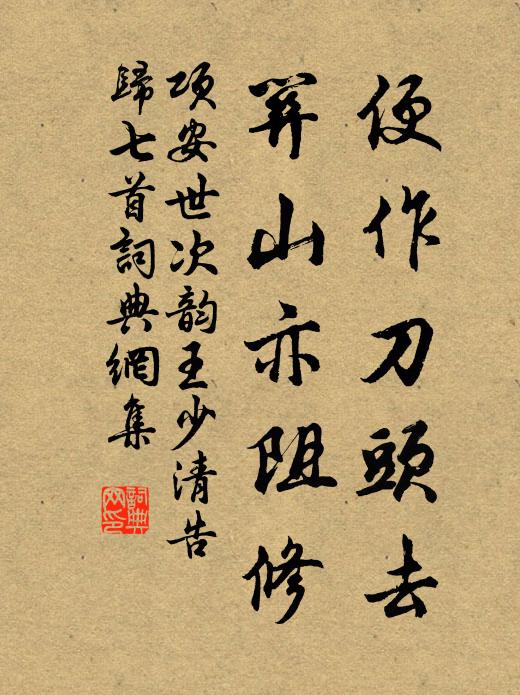 便作刀頭去
關山亦阻修
項安世次韵王少清告
歸七首詞典網集
詞典
网印